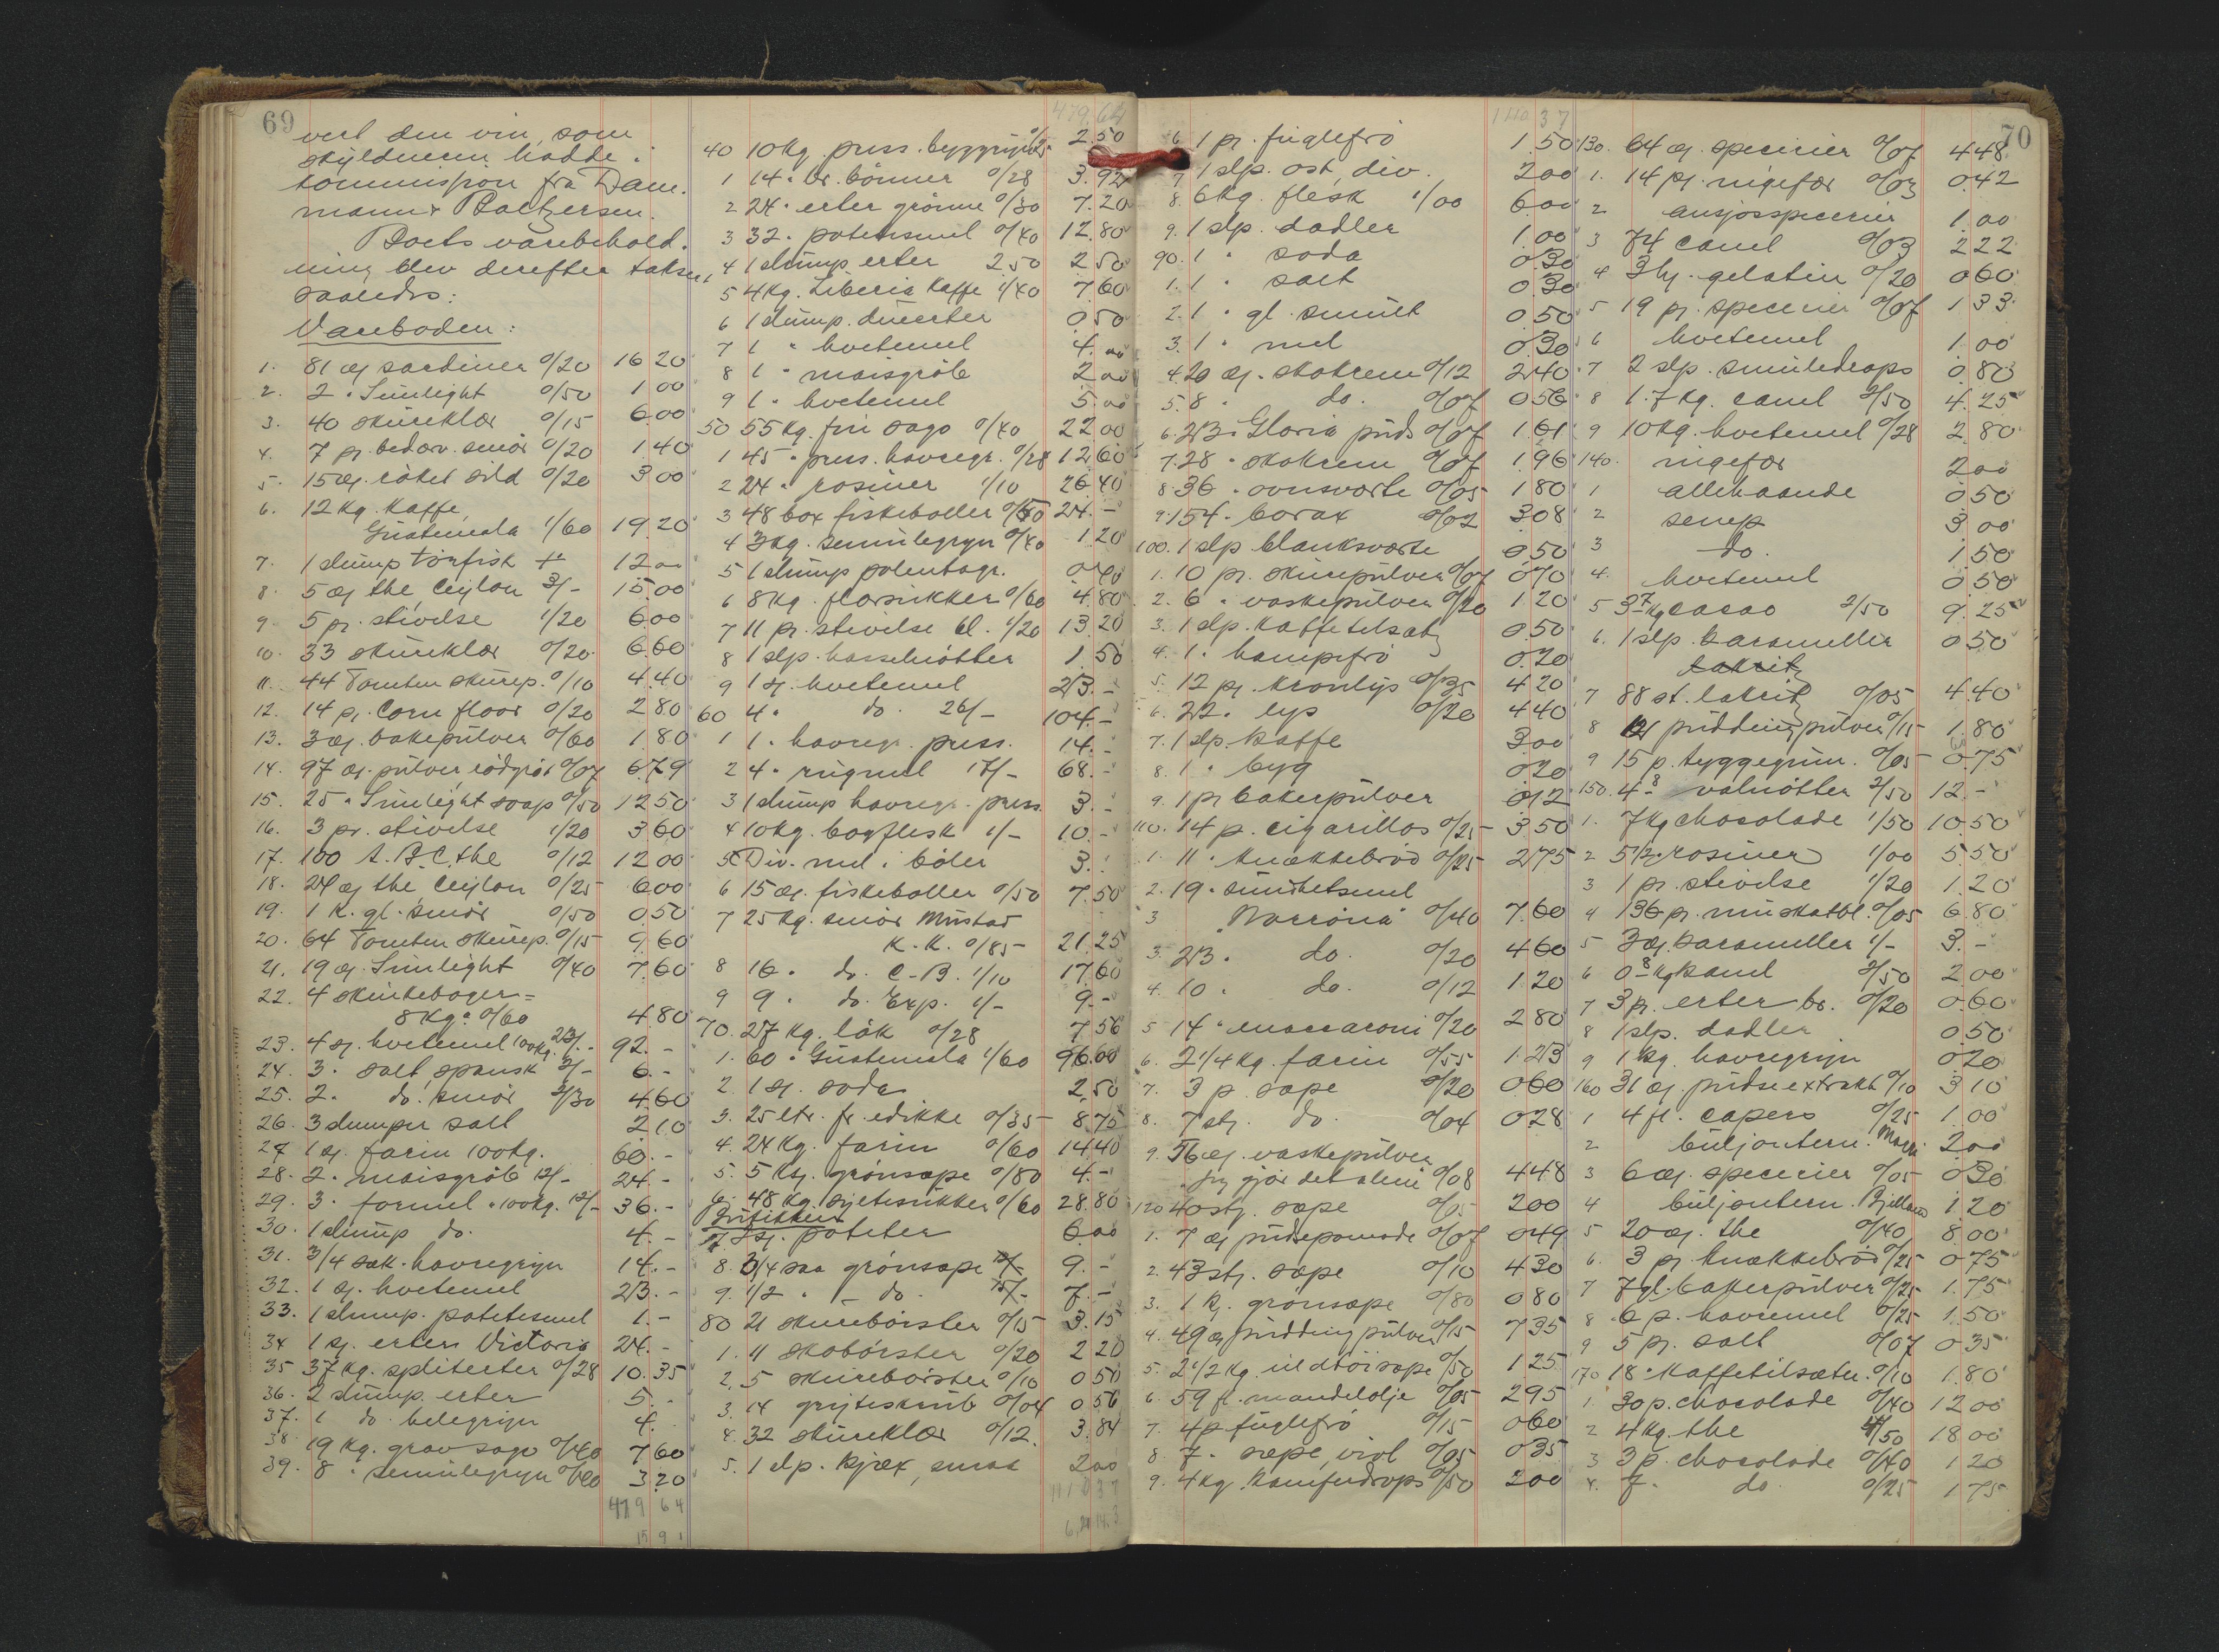 69
vert den vin, som
skyldneren hadde i
kommission fra Dam-
mann & Baltzersen.
Boets varebehold-
ning blev derefter takser
saaledes:
Vareboden:
1. 81 æ sardiner 0/20 16 20
2. 2 " Sunlight 0/50 1 00
3. 40 skureklær 0/15 6 00
4. 7 p. bedærv. smör 0/20 1 40
5. 15 æ. rökt sild 0/20 3 00
6. 12 kg. kaffe,
Guatemala 1/60 19 20
7. 1 slump törfisk 12 00
8. 5 æ the Ceylon 3/- 15 00
9. 5 p. stivelse 1/20 6 00
10. 33 skureklær 0/20 6 60
11. 44 Tomten skurep. 0/10 4 40
12. 14 p. Corn floor 0/20 2 80
13. 3 æ. bakepulver 0/60 1 80
14. 97 æ. pulver rödgröt 0/07 6 79
15. 25 " Sunlight soap 0/50 12 50
16. 3 pr. stivelse 1/20 3 60
17. 100 A.B.C. the 0/12 12 00
18. 24 æ the Ceylon 0/25 6 00
19. 1 k. gl. smör 0/50 0 50
20. 64 Tomten skurep. 0/15 9 60
21. 19 æ. Sunlight 0/40 7.60
22. 4 skinkeboger =
8 kg. a 0/60 4 80
23. 4 sj. hvetemel 100 kg. 23/- 92.-
24. 3 " salt spansk 2/- 6.-
25. 2 " do. smör 2/30 4 60
26. 3 slumper salt 2 10
27 1 sj. farin 100 kg. 60.-
28. 2 " maisgröb 12/- 24.-
29. 3 " formel a 100 kg. 12/- 36.-
30. 1 slump do. 4.-
31. 3/4 sæk. havregryn 14.-
32. 1 sj. hvetemel 23.-
33. 1 slump. potetesmel 1.-
34 1 sj. erter Victoria 24.-
35 37 kg. spliterter 0/28 10.35
36. 2 slump. erter 5.-
37. 1 do. helegryn 4.
38. 19 kg. grov sago 0/40 7 60
39. 8 " semulegryn 0/40 3 20
479 64
479.64
40 10 kg. press. byggryn 0/25 2.50
1 14 " br. bönner 0/28 3.92
2 24 " erter grönne 0/30 7.20
3 32 " potetesmel 0/40 12.80
4 1 slump erter 2.50 2 50
5 4 kg. Liberia Kaffe 1/40 7.60
6 1 slump. dueerter 0 50
7 1 " hvetemel 4.00
8 1 " maisgröb 2 00
9 1 " hvetemel 5.00
50 55 kg. fin sago 0/40 22 00
1 45 " press. havregr. 0/28 12.60
2 24 " rosiner 1/10 26.40
3 48 box fiskeboller 0/50 24.-
4 3 kg. semulegryn 0/40 1.20
5 1 slump polentagr. 0 40
6 8 kg. florsukker 0/60 4.80
7 11 pr. stivelse bl. 1/20 13.20
8 1 slp. hasselnötter 1.50
9 1 sj. hvetemel 23.-
60 4 " do. 26/- 104.-
1 1 " havregr. press. 14.-
2 4 " rugmel 17/- 68.-
3 1 slump havregr. press. 3.-
4 10 kg. bogflesk 1/- 10.-
5 Div. mel i böler 3.
6 15 æ. fiskeboller 0/50 7.50
7 25 kg. smör Mustad
K.K. 0/85 21.25
8 16 " do. C-B. 1/10 17.60
9 9 " do. Exp. 1/- 9.-
70. 27 kg. lök 0/28 7.56
1. 60 " Guatemala 1/60 96.00
2 1 sj. soda 2.50
3. 25 ltr. fr. edikke 0/35 8.75
4. 24 kg. farin 0/60 14.40
5. 5 ksj. grönsæpe 0/80 4.-
6. 48 kg. sjetesukker 0/60 28.80
Butikken
7 2 sj. poteter 6.00
8. 3/4 grönsæpe 12/- 9.-
9. 1/2 " - do. 15/- 7.-
80 21 skurebörster 0/15 3.15
1. 11 skobörster 0/20 2 20
2. 5 skurebörster 0/10 0 50
3. 14 gryteskrub 0/04 0.56
4. 32 skureklær 0/12. 3.84
5. 1 slp. kjæx, smaa 2 00
1110 37
6 1 pr. fuglefrö 1.50
7 1 slp. ost, div. 2 00
8. 6 kg. flesk 1/00 6 00
9. 1 slp. dadler 1.00
90. 1 " soda 0.30
1. 1 " salt 0.30
2. 1 " gl. smult 0.50
3. 1 " mel 0.30
4. 20 æ. skokrem 0/12 2.40
5. 8 " do. 0/07 0 56
6. 23 " Gloria puds 0/07 1.61
7. 28 " skokrem 0/07 1.96
8. 36 " ovnsværte 0/05 1 80
9. 154 " borax 0/02 3.08
100. 1 slp blanksværte 0 50
1. 10 pr. skurepulver 0/07 0 70
2. 6 " vaskepulver 0/20 1 20
3. 1 slp. kaffetilsæts 0 50
4. 1 " hampefrö 0.20
5. 12 p. kronlys 0/35 4 20
6. 22 " lys 0/20 4 40
7. 1 slp. kaffe 3.00
8. 1 " byg 0.20
9. 1 pr bakerpulver 0.12
110. 14 p. cigarillos 0/25 3.50
1. 11 " knækkebröd 0/25 2.75
2. 19 " sundhetsmel
3 "Norröna" 0/40 7.60
3. 23 " do. 0/20 4 60
4. 10 " do. 0/12 1 20
5 14 " maccaroni 0/20 2 80
6. 2 1/4 kg. farin 0/55 1.23
7. 3 p. sæpe 0/20 0 60
8. 7 stj. do. 0/04 0 28
9. 56 æ. vaskepulver
"Jeg gjör det alene" 0/08 4 48
120 40 stj. sæpe 0/05 2 00
1. 7 æ pudsepomade 0/07 0 49
2. 43 stj. sæpe 0/10 4 30
3. 1 kj. grönsæpe 0/80 0 80
4. 49 æ pudding pulver 0/15 7 35
5. 2 1/2 kg. uldtöisæpe 0/50 1 25
6. 59 fl. mandelolje 0/05 2 95
7. 4 p fuglefrö 0/15 0 60
8. 7 " sæpe, viol 0/05 0 35
9. 4 kg. kamferdrops 0/50 2 00
70
130. 64 æ. specerier 0/07 4 48
1. 14 pj. ingefær 0/03 0 42
2 ansjosspecerier 1.00
3 74 canel 0/03 2 22
4 3 hj. gelatin 0/20 0 60
5 19 pj. specerier 0/07 1 33
6 hvetemel 1.00
7 2 slp. smuledrops 0.80
8 1.7 kg. canel 2/50 4.25
9 10 kg. hvetemel 0/28 2.80
140. ingefær 2 00
1 allehaande 0 50
2 senep 3 00
3 do. 1.50
4. hvetemel 0 50
5 3.7 kg cacao 2/50 9.25
6. 1 slp. karameller 0 50
lakrits
7 88 st. lakrits 0/05 4.40
8 12 puddingpulver 0/15 1.80
9 15 p. tyggegum. 0/05 0.75
150. 4.8 valnötter 2/50 12.-
1. 7 kg chocolade 1/50 10.50
2 5 1/2 " rosiner 1/00 5.50
3 1 pr. stivelse 1/20 1.20
4 136 p. muskatbl. 0/05 6.80
5 3 æ. karameller 1/- 3.-
6 0.8 kg kanel 2/50 2 00
7 3 p. erter br. 0/20 0.60
8 1 slp. dadler 0 50
9 1 kg. havregryn 0 20
160 31 æ. pudseextrakt 0/10 3 10
1 4 fl. capers 0/25 1 00
2 buljontern. Maggi 2 00
3 6 æ. specerier 0/05 0 30
4 buljontern. Bjelland 1.20
5 20 æ. the 0/40 8.00
6. 3 p. knækkebröd 0/25 0 75
7 7 gl. bakerpulver 0/25 1.75
8 6 p. havremel 0/25 1.50
9 5 p. salt 0/07 0 35
170 18 " kaffetilsæts. 0/10 1.80
1. 30 p. chocolade 0/40 12 00
2 4 kg. the 4/50 18 00
3 3 p. chocolade 0/40 1 20
4. 7 " do. 0/25 1 75